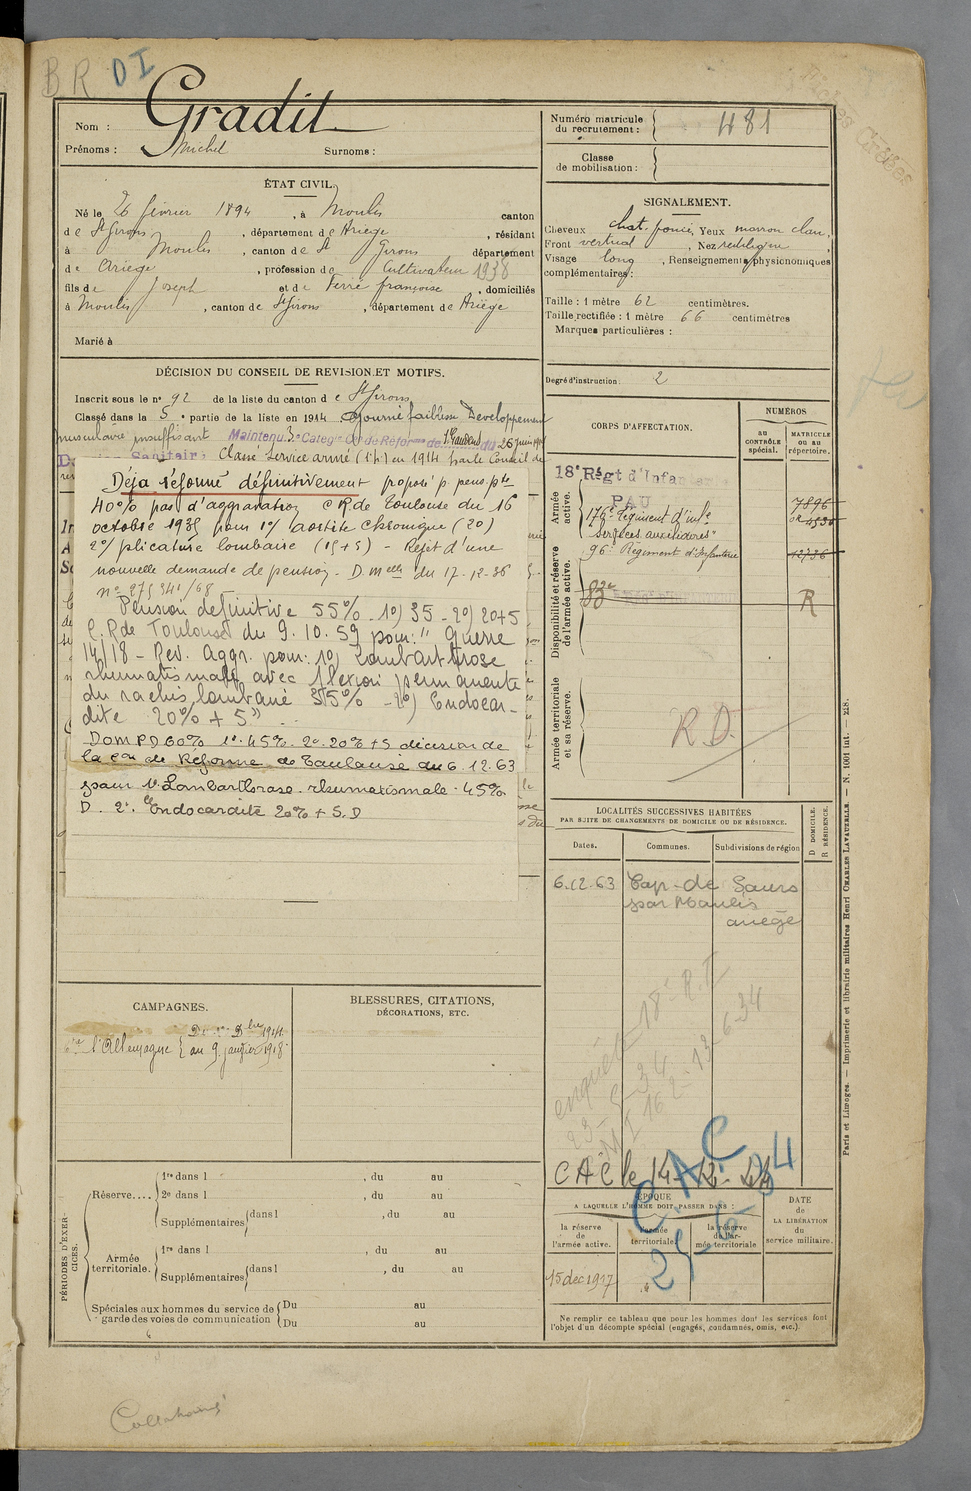 B R DI
Nom : Gradit
Prénoms : Michel Surnoms :
Numéro matricule
du recrutement : 481
Classe
de mobilisation :
ÉTAT CIVIL.
Né le 26 février 1894, à Moulis canton
de St Girons, département de Ariège, résidant
à Moulis, canton de St Girons département
de Ariège, profession de Cultivateur 1938
fils de Joseph et de Ferré françoise, domiciliés
à Moulis, canton de St Girons, département de Ariège
Marié à
SIGNALEMENT.
Cheveux chat. foncé, Yeux marron clair,
Front vertical, Nez rectiligne,
Visage long, Renseignements physionomiques
complémentaires :
Taille : 1 mètre 62 centimètres.
Taille rectifiée : 1 mètre 66 centimètres
Marques particulières :
Degré d'instruction : 2
DÉCISION DU CONSEIL DE REVISION ET MOTIFS.
Inscrit sous le no 92 de la liste du canton de St Girons
Classé dans la 5e partie de la liste en 1914 Ajourné faiblesse Developpement
musculaire insuffisant Maintenu 3e Catég
Classé Service armé en 1914 par le Conseil de
Déja réformé définitivement proposé p. pens. pte
40% pas d'aggravation C R de Toulouse du 16
octobre 1935 pour 1°/ aortite chronique (20)
2°/ plicature lombaire (15+5) - Rejet d'une
nouvelle demande de pension. D. melle du 17-12-36
n° 275941/68
Pension definitive 55% 1°) 35 - 2°) 20+5
C. R de Toulouse du 9. 10. 59 pour: " Guerre
14/18 - Rev. Aggr. pour: 1°) Lombarthrose
rhumatismale avec flexion permanente
du rachis lombaire 35% - 2°) Endocar-
dite 20% + 5"
Dom PD 60% 1°. 45% 2°. 20% + 5 décision de
la Con de Réforme de Toulouse du 6. 12. 63
pour 1° Lombarthrose rhumatismale . 45%
D. 2°. Endocardite 20% + 5. D
CORPS D'AFFECTATION.
NUMÉROS
au
CONTRÔLE
spécial.
MATRICULE
ou au
répertoire.
Armée
active.
18e Régt d'Infanterie
PAU
7896
176e Régiment d'infie
"services auxiliaires"
96e Régiment d'Infanterie
12736
Disponibilité et réserve
de l'armée active.
83e
R
Armée territoriale
et sa réserve.
R.D.
LOCALITÉS SUCCESSIVES HABITÉES
PAR SUITE DE CHANGEMENTS DE DOMICILE OU DE RÉSIDENCE.
D. DOMICILE.
R. RÉSIDENCE.
Dates.
Communes.
Subdivisions de région
6.12.63 Cap-de Saurs
par Moulis
ariège
enquête 18e R.I
CAC le 14-12-44
CAC
CAMPAGNES.
l'Allemagne
au 9 janvier 1918
BLESSURES, CITATIONS,
DÉCORATIONS, ETC.
PÉRIODES D'EXERCICES.
Réserve....
1re dans l , du au
2e dans l , du au
Supplémentaires dans l , du au
Armée
territoriale.
1re dans l , du au
Supplémentaires dans l , du au
Spéciales aux hommes du service de
garde des voies de communication
Du au
Du au
ÉPOQUE
A LAQUELLE L'HOMME DOIT PASSER DANS :
la réserve
de
l'armée active.
l'armée
territoriale.
la réserve
de l'ar-
mée territoriale
DATE
de
LA LIBÉRATION
du
service militaire.
15 dec 1917
Ne remplir ce tableau que pour les hommes dont les services font
l'objet d'un décompte spécial (engagés, condamnés, omis, etc.).
Paris et Limoges. — Imprimerie et librairie militaires Henri CHARLES-LAVAUZELLE. — N. 1001 int. — 218.